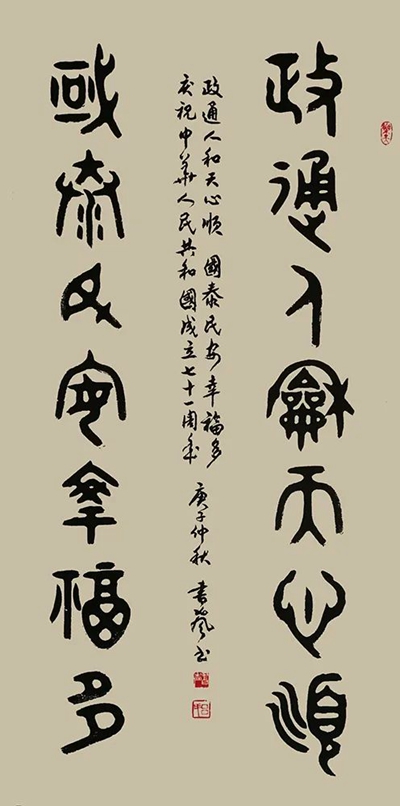 政通人龢天心順
政通人和天心順 國泰民安幸福多
庆祝中華人民共和國成立七十一周年
庚子仲秋 書藝书
國泰民安幸福多